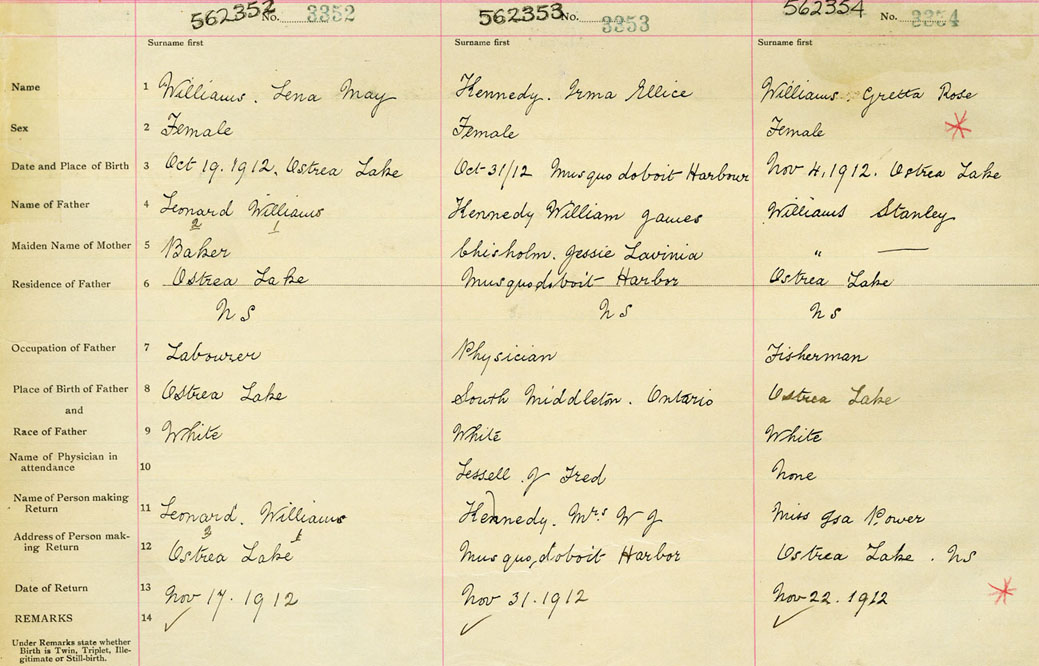 562352 No. 3352 562353 No. 3353 562354 No. 3354
Surname first Surname first Surname first
Name 1 Williams. Lena May Kennedy. Irma Ellice Williams. Gretta Rose
Sex 2 Female Female Female
Date and Place of Birth 3 Oct 19. 1912. Ostrea Lake Oct 31/12 Musquodoboit Harbour Nov 4, 1912. Ostrea Lake
Name of Father 4 Leonard Williams Kennedy William James Williams Stanley
2 1
Maiden Name of Mother 5 Baker Chisholm. Jessie Lavinia " —
Residence of Father 6 Ostrea Lake Musquodoboit Harbor Ostrea Lake
NS NS NS
Occupation of Father 7 Labourer Physician Fisherman
Place of Birth of Father 8 Ostrea Lake South Middleton. Ontario Ostrea Lake
and
Race of Father 9 White White White
Name of Physician in
attendance 10 Lessell J Fred None
Name of Person making
Return 11 Leonard. Williams Kennedy. Mrs W J Miss Isa Power
Address of Person mak-
ing Return 12 Ostrea Lake Musquodoboit Harbor Ostrea Lake. NS
Date of Return 13 Nov 17. 1912 Nov 31. 1912 Nov 22. 1912
REMARKS 14 ✓ ✓ ✓
Under Remarks state whether
Birth is Twin, Triplet, Ille-
gitimate or Still-birth.